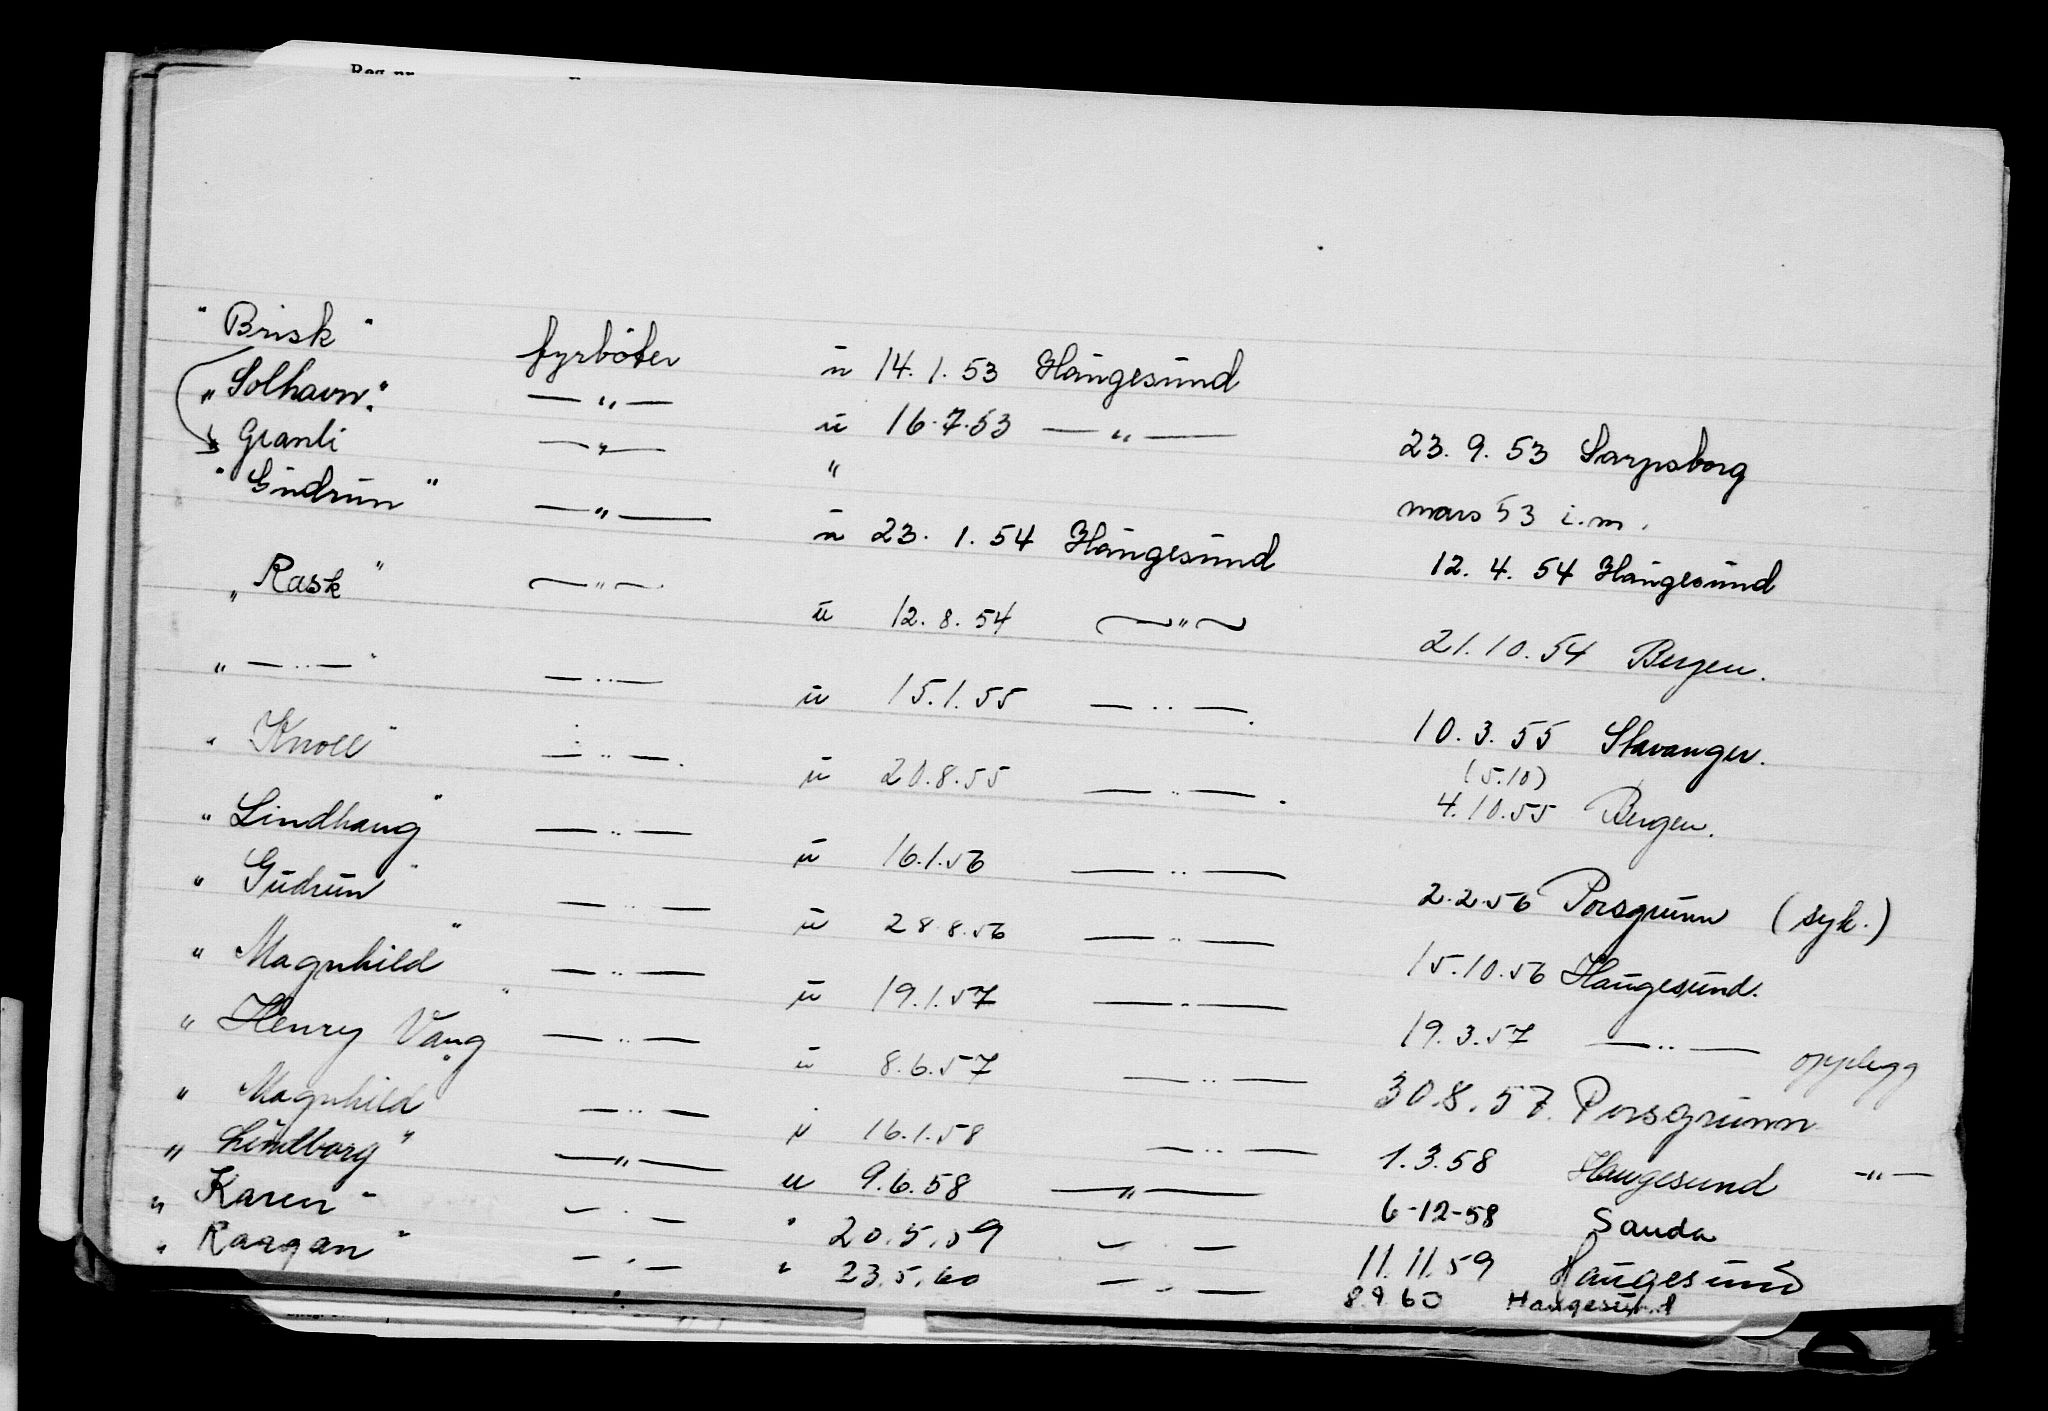 "Brisk" fyrbøter u 14.1.53 Haugesund
"Solhavn". —"— u 16.7.53 —"— 23.9.53 Sarpsborg
Granli —"— " mars 53 i.m.
"Gudrun" —"— u 23.1.54 Haugesund 12.4.54 Haugesund
"Rask" —"— u 12.8.54 —"— 21.10.54 Bergen.
"—"—" —"— u 15.1.55 —"—. 10.3.55 Stavanger.
(5.10)
"Knoll" —"—. u 20.8.55 —"—. 4.10.55 Bergen.
"Lindhaug" —"— u 16.1.56 —"— 2.2.56 Porsgrunn (syk.)
"Gudrun" —"— u 28.8.56 —"— 15.10.56 Haugesund.
"Magnhild" —"— u 19.1.57 —"— 19.3.57 —"— opplegg
"Henry Vang" —"— u 8.6.57 —"— 30.8.57. Porsgrunn
"Magnhild" —"— u 16.1.58 —"— 1.3.58 Haugesund —"—
"Lindborg" —"— u 9.6.58 —"— 6-12-58 Sauda
"Karen" —"— " 20.5.59 —"— 11.11.59 Haugesund
"Rargan" —"— " 23.5.60 —"— 8.9.60 Haugesund